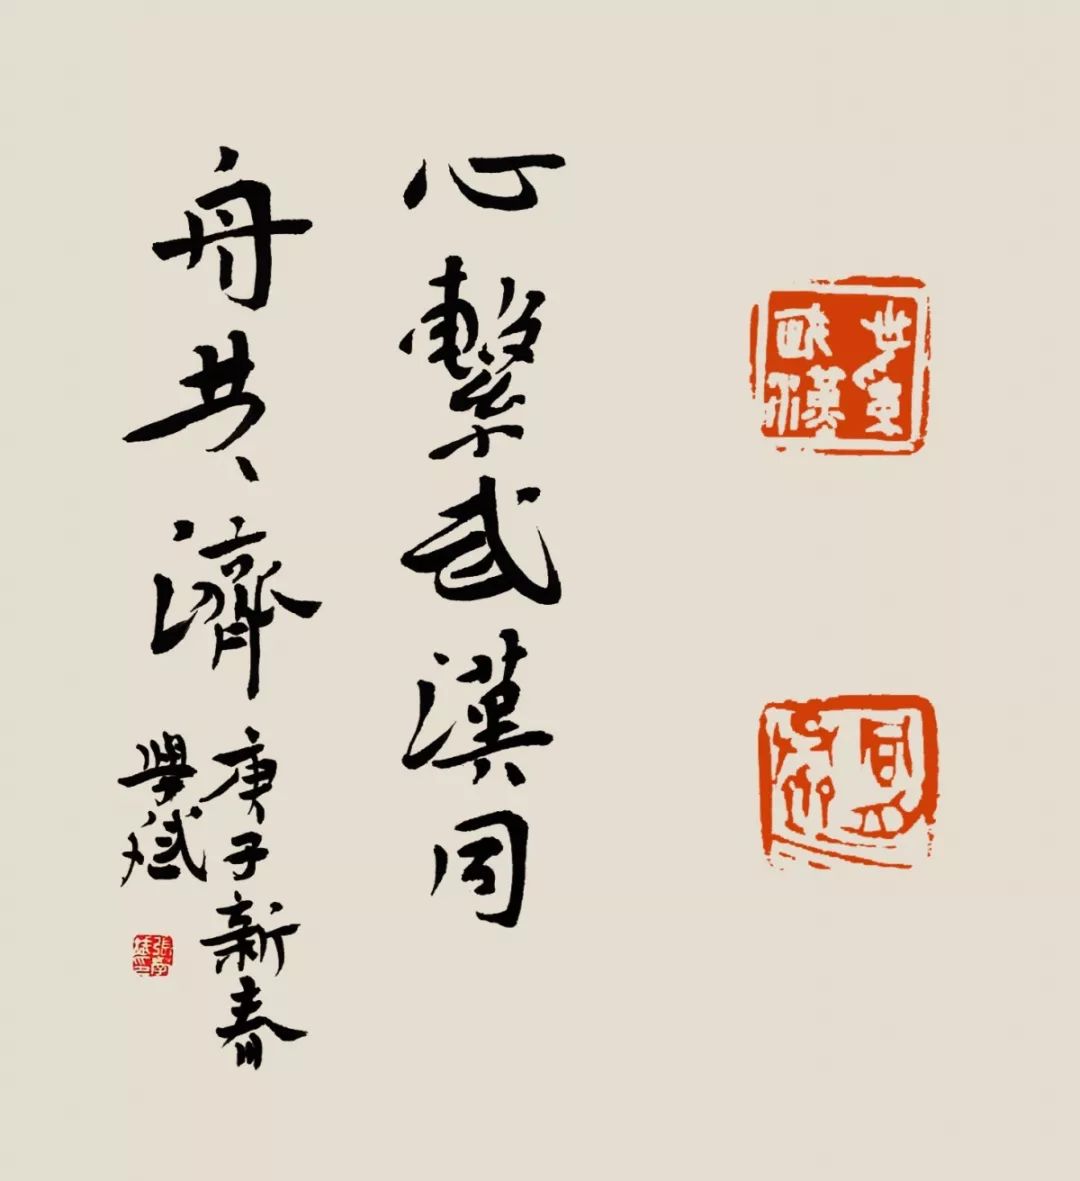 心繫武漢同
舟共濟
庚子新春
學斌